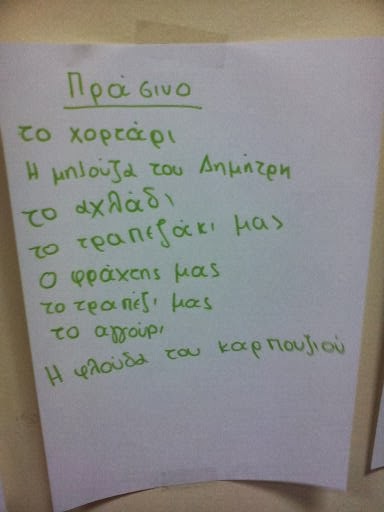 Πράσινο
το χορτάρι
Η μπλούζα του Δημήτρη
το αχλάδι
το τραπεζάκι μας
Ο φράχτης μας
το τραπέζι μας
το αγγούρι
Η φλούδα του καρπουζιού